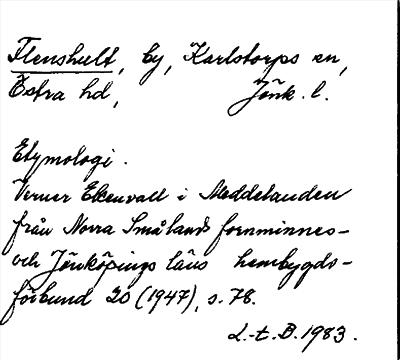 Flenshult, by, Karlstorps sn,
Östra hd, Jönk. l.
Etymologi.
Verner Ekenvall i Meddelanden
från Norra Smålands fornminnes-
och Jönköpings läns hembygds-
förbund 20 (1947), s. 78.
L.-t. B. 1983.